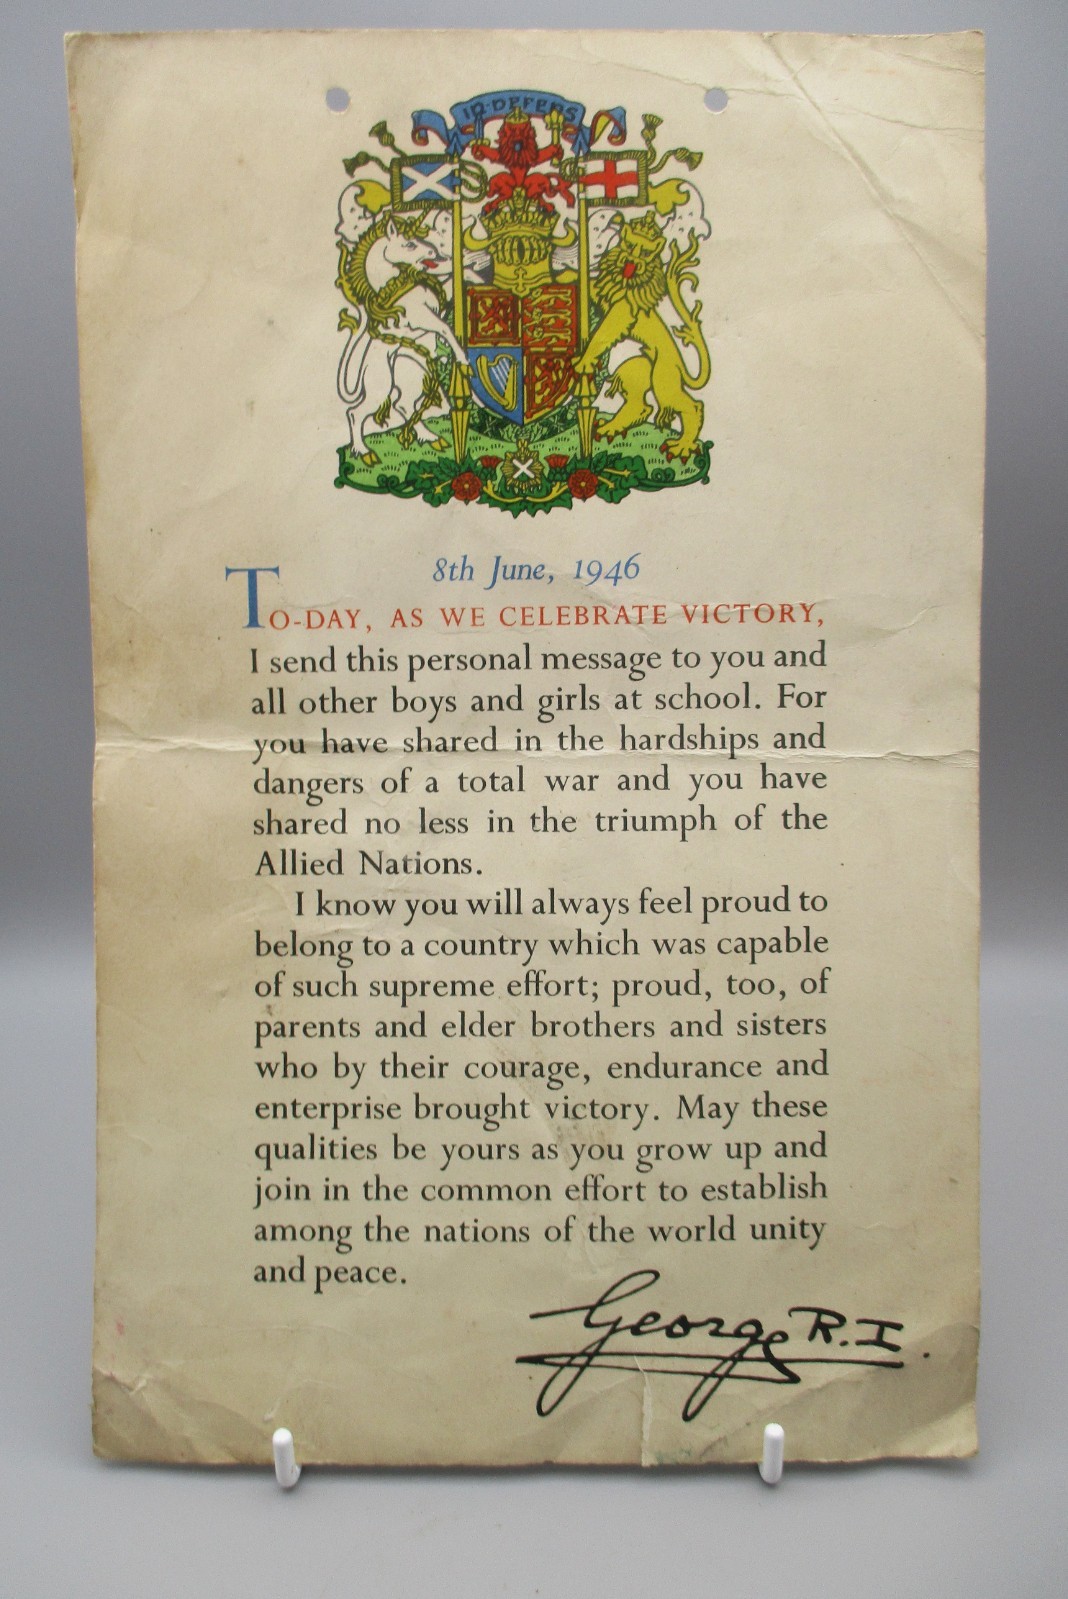 IN·DEFENS
8th June, 1946
TO-DAY, AS WE CELEBRATE VICTORY,
I send this personal message to you and
all other boys and girls at school. For
you have shared in the hardships and
dangers of a total war and you have
shared no less in the triumph of the
Allied Nations.
I know you will always feel proud to
belong to a country which was capable
of such supreme effort; proud, too, of
parents and elder brothers and sisters
who by their courage, endurance and
enterprise brought victory. May these
qualities be yours as you grow up and
join in the common effort to establish
among the nations of the world unity
and peace.
George R.I.